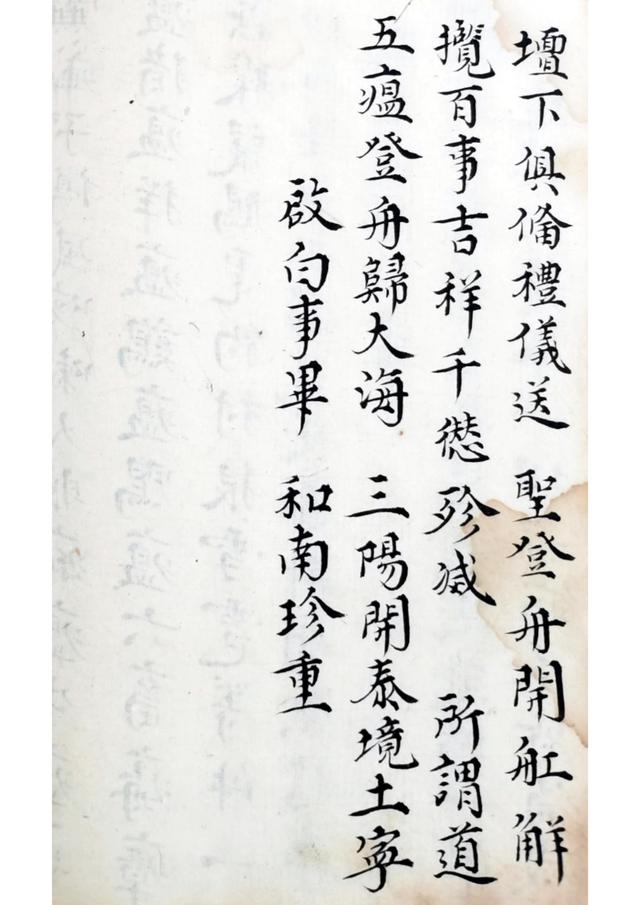 壇下俱俻禮儀送 聖登舟開舡觧
攪百事吉祥千愆殄减 所謂道
五瘟登舟歸大海 三陽開泰境土寧
啟白事畢 和南珍重